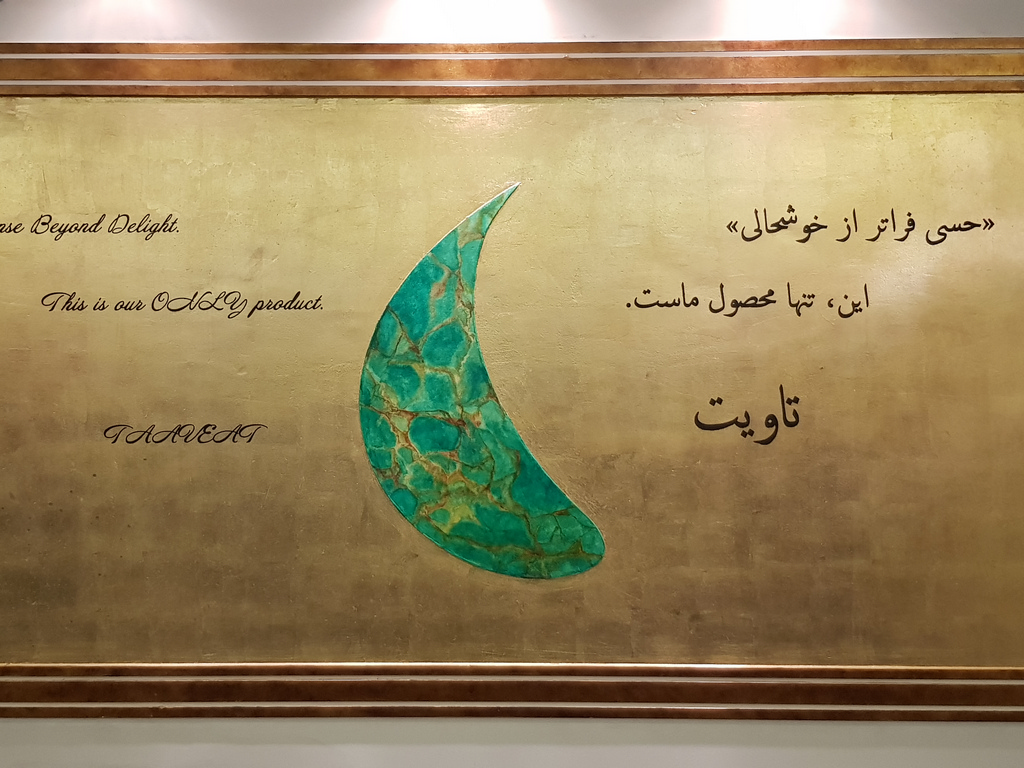 Beyond Delight.
This is our ONLY product.
TAAVEAT
«حسی فراتر از خوشحالی»
این، تنها محصول ماست.
تاویت